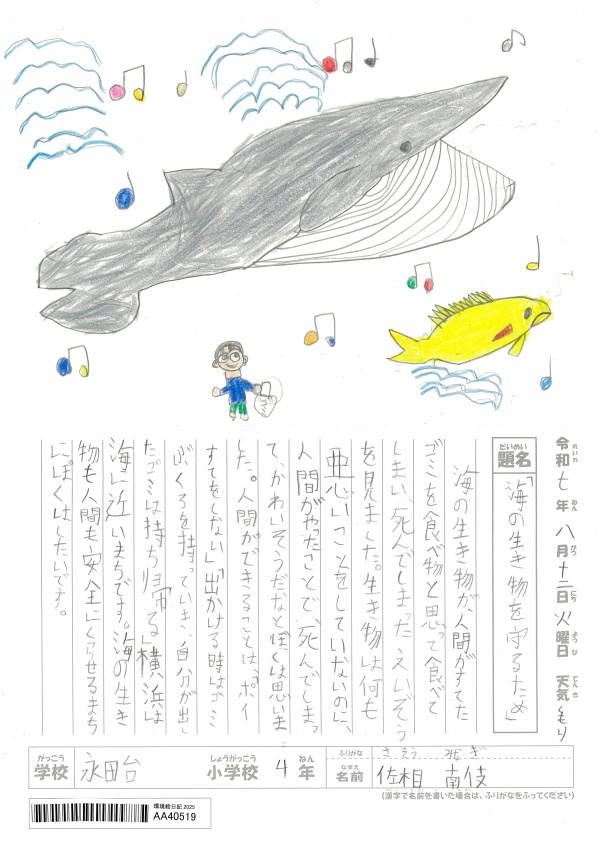 令和七年八月十二日火曜日 天気 くもり
れいわ ねん がつ にち ようび てんき
だいめい
題名
「海の生き物を守るため」
海の生き物が、人間がすてた
ゴミを食べ物と思って食べて
しまい、死んでしまったえいぞう
を見ました。生き物は何も
悪いことをしていないのに、
人間がやったことで、死んでしまっ
て、かわいそうだなとぼくは思いま
した。人間ができることは、「ポイ
すてをしない」「出かける時はゴミ
ぶくろを持っていき、自分が出し
たゴミは持ち帰る」横浜は
海に近いまちです。海の生き
物も人間も安全にくらせるまち
にぼくはしたいです。
がっこう しょうがっこう ねん
学校 永田台 小学校 4年
ふりがな さそう みなぎ
なまえ
名前 佐相 南伎
(漢字で名前を書いた場合は、ふりがなをふってください)
環境絵日記 2025
AA40519